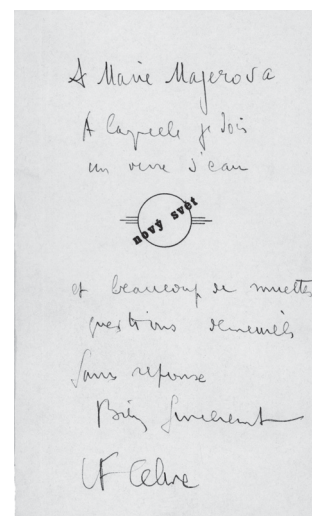 A Marie Majerova
A laquelle je dois
un verre d'eau
nový svět
et beaucoup de muettes
questions demeurées
sans reponse
Bien Sincerement
LF Celine